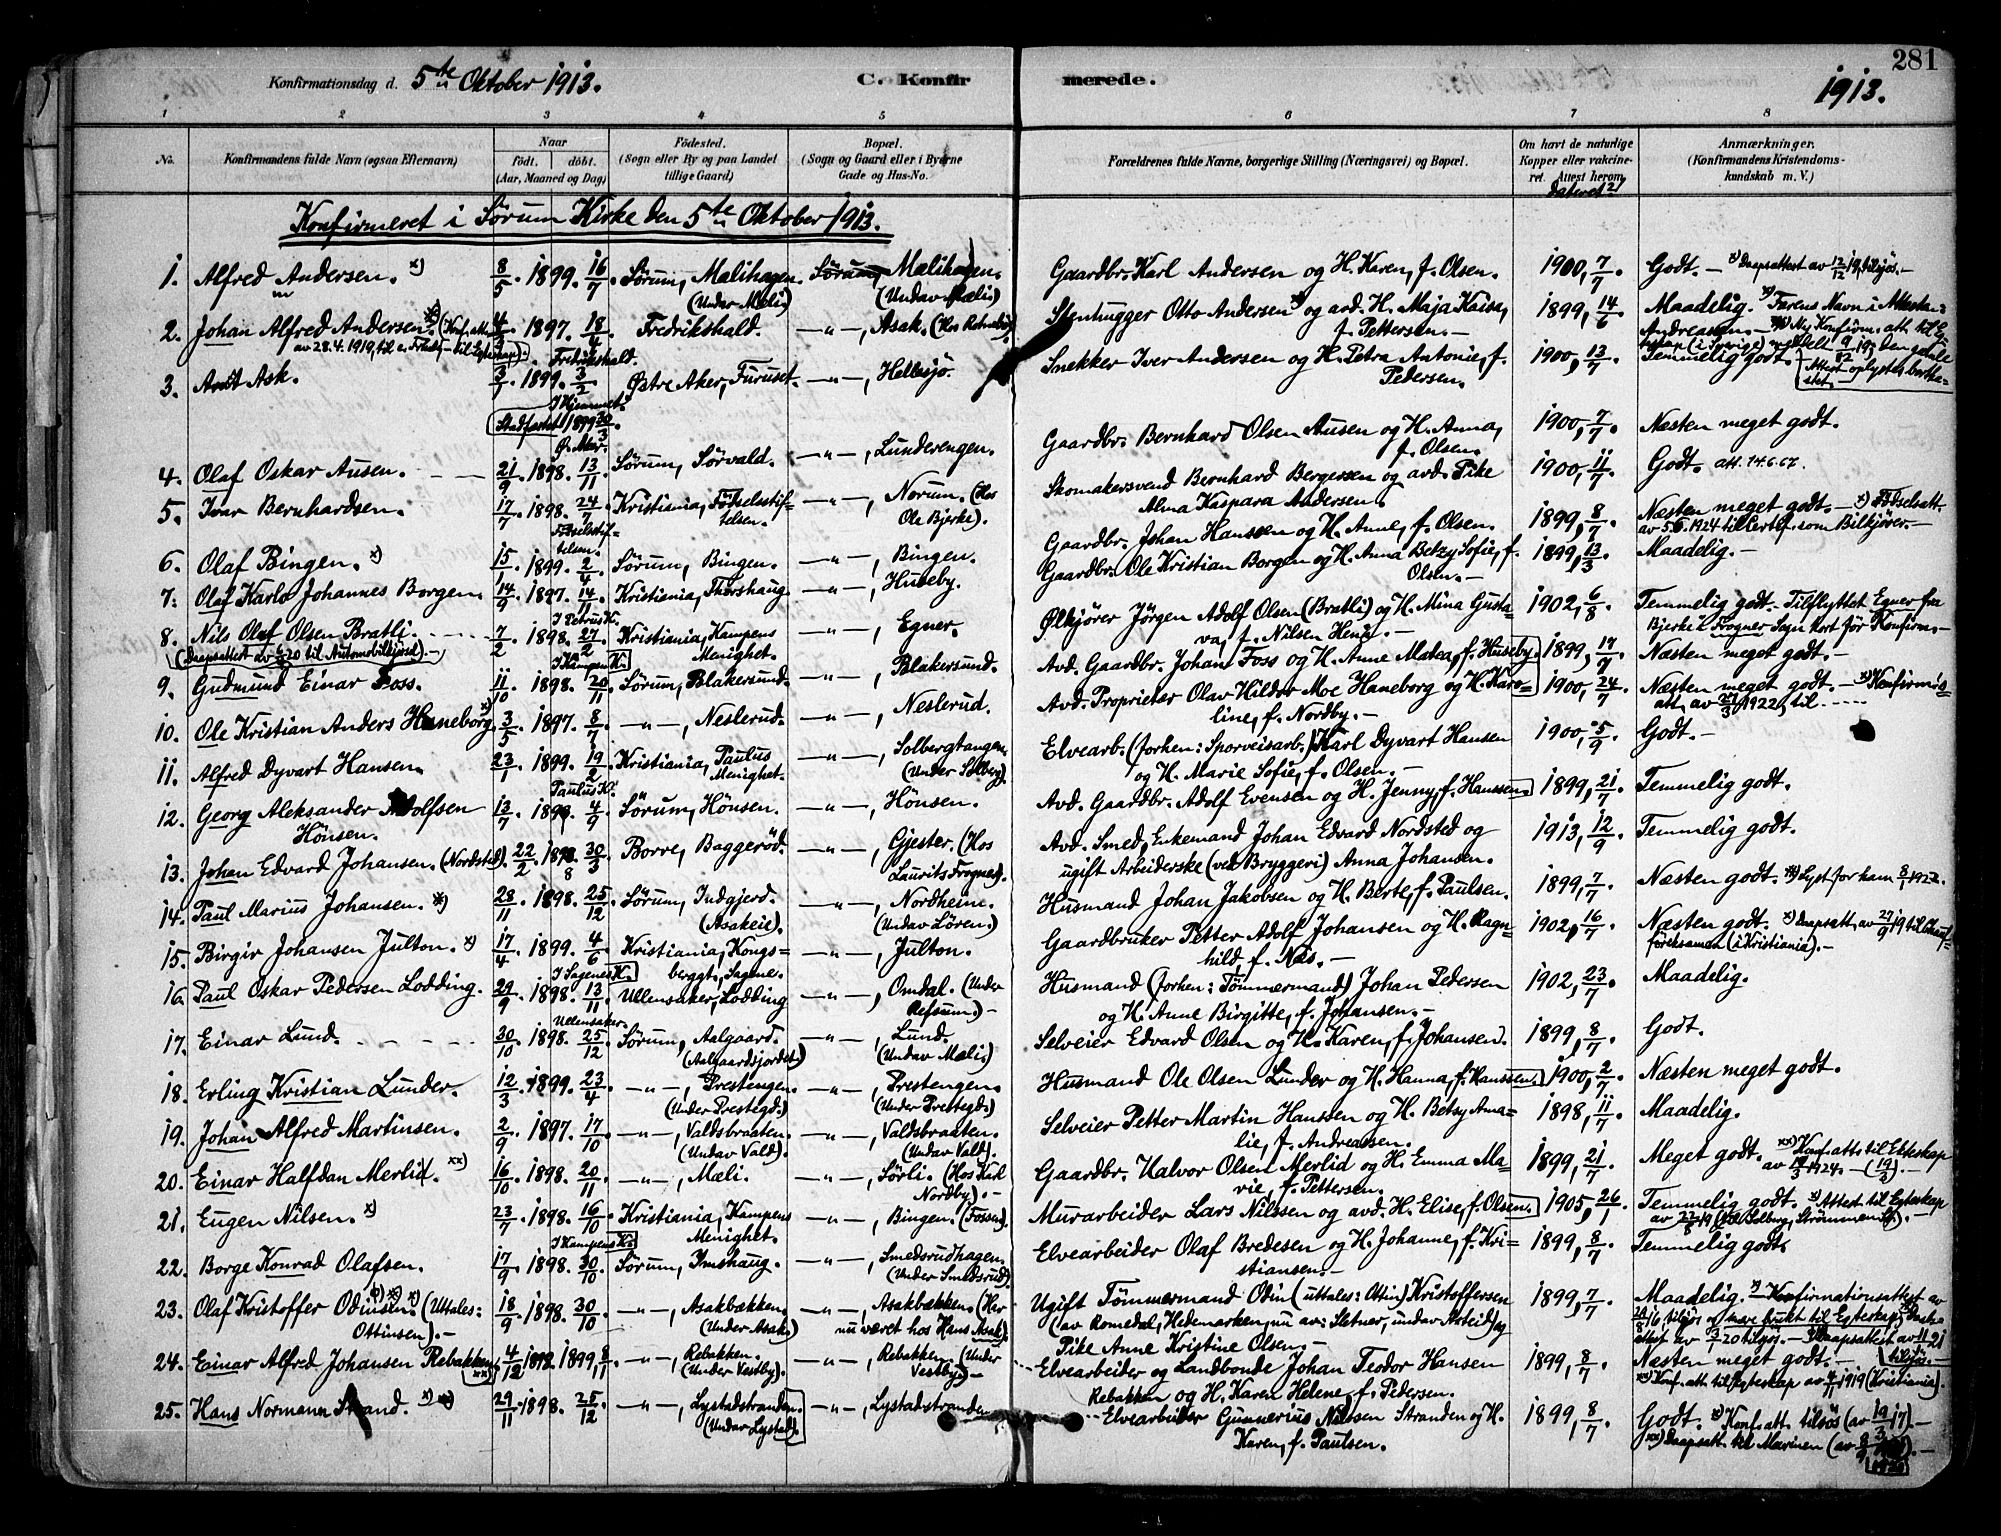 281
Konfirmationsdag d. 5te Oktober 1913. C. Konfirmerede. 1913.
1 2 3 4 5 6 7 8
No. Konfirmandens fulde Navn (ogsaa Efternavn) Naar født. døbt. (Aar, Maaned og Dag) Fødested. (Sogn eller By og paa Landet tillige Gaard) Bopæl. (Sogn og Gaard eller i Byerne Gade og Hus-No. Forældrenes fulde Navne, borgerlige Stilling (Næringsvei) og Bopæl. Om havt de naturlige Kopper eller vakcineret. Attest herom dateret? Anmærkninger. (Konfirmandens Kristendomskundskab m. V.)
Konfirmeret i Sørum Kirke den 5te Oktober 1913.
1. Alfred Andersen. x) 8/5 1899. 16/7 Sørum, Mælihagen. (Under Mæli) Mælihagen. (Undav Mæli) Gaardbr. Karl Andersen og H. Karen, f. Olsen. 1900, 7/7 Godt. — x) Daapsattest av 12/12 19, tilsjøs. —
2. Johan Alfred Andersen. 1897. 18/4 Fredrikshald. — " —, Asak. Stenhugger Otto Andersen og avd. H. Maja Kaisa, f. Pettersen. — 1899, 14/6 Maadelig.
av 28.4.1919, Fredrikshald.
3. Arnt Ask. 1899. 3/2 Østre Aker, Furuset. — " —, Hellesjø. Snekker Iver Andersen og H. Petra Antonie, f. Pedersen. 1900, 13/7 Temmelig godt.
I Hjemmet. Stadfæstet 1899 30/3 Ø. Aker.
4. Olaf Oskar Ausen. 21/9 1898. 13/11 Sørum, Sørvald. — " —, Lunderengen. Gaardbr. Bernhard Olsen Ausen og H. Anna, f. Olsen. 1900, 7/7 Næsten meget godt.
5. Ivar Bernhardsen. 17/7 1898. 24/7 Kristiania, Fødselsstiftelsen. — " —, Norum. (Hos Ole Bjerke). Skomakersvend Bernhard Bergersen og avd. Pike Alma Kaspara Andersen. 1900, 11/7 Godt. att. 14.6.67.
Fødselsstiftelsen.
6. Olaf Bingen. x) 15/1 1899. 2/4 Sørum, Bingen. — " —, Bingen. Gaardbr. Johan Hanssen og H. Anne, f. Olsen. 1899, 8/7 Næsten meget godt. — x) Fødselsatt. av 5.6.1924 til Certif. som Bilkjører. —
7. Olaf Karlo Johannes Borgen. 14/9 1897. 14/11 Kristiania, Thorshaug. — " —, Huseby. Gaardbr. Ole Kristian Borgen og H. Anna Betzy Sofie, f. Olsen. — 1899, 13/3 Maadelig. —
I Petrus K.
8. Nils Olaf Olsen Bratli. 7/2 1898. 27/2 Kristiania, Kampens Menighet. — " —, Egner. Ølkjører Jörgen Adolf Olsen (Bratli) og H. Mina Gustava, f. Nilsen Henie. — 1902, 6/8 Temmelig godt. Tilflyttet Egner fra Bjerke i Frogner Sogn kort før Konfirm. —
(Daapsattest av 20 til Automobilkjørsel). — I Kampens K.
9. Gudmund Einar Foss. 11/10 1898. 20/11 Sørum, Blakersund. — " —, Blakersund. Avd. Gaardbr. Johan Foss og H. Anne Matea, f. Huseby. 1899, 17/7 Næsten meget godt. —
10. Ole Kristian Anders Haneborg. x) 3/5 1897. 8/7 — " —, Neslerud. — " —, Neslerud. Avd. Proprietær Olav Hildor Moe Haneborg og H. Karoline, f. Nordby. — 1900, 24/7 Næsten meget godt. — x) Konfirm's att. av 27/3 1922, til ----
11. Alfred Dyvart Hansen. 23/1 1899. 19/2 Kristiania, Paulus Menighet. — " —, Solbergtangen. (Under Solberg). Elvearb. (forhen: Sporveisarb.) Karl Dyvart Hansen og H. Marie Sofie, f. Olsen. — 1900, 5/9 Godt. —
Paulus K.
12. Georg Aleksander Adolfsen Hönsen. 13/7 1898. 4/9 Sørum, Hönsen. — " —, Hönsen. Avd. Gaardbr. Adolf Evensen og H. Jenny, f. Hanssen. 1899, 21/7 Temmelig godt.
13. Johan Edvard Johansen. (Nordsted) 22/2 1898. 30/3 Borre, Baggerød. — " —, Gjester. (Hos Laurits Frogner). Avd. Smed, Enkemand Johan Edvard Nordsted og ugift Arbeiderske (ved Bryggeri) Anna Johansen. 1913, 12/9 Temmelig godt.
14. Paul Marius Johansen. x) 28/11 1898. 25/12 Sørum, Indgjerd. (Asakeie). — " —, Nordheim. (Undav Lören). Husmand Johan Jakobsen og H. Berte, f. Paulsen. 1899, 7/7 Næsten godt. x) Lyst for ham 3/1 1922.
15. Birgiv Johansen Julton. x) 17/4 1899. 4/6 Kristiania, Kongsberggt., Sagene. — " —, Julton. Gaardbruker Petter Adolf Johansen og H. Ragnhild, f. Næs. — 1902, 16/7 Næsten godt. x) Daapsatt. av 29/9 19 til Chaufføreksamen (i Kristiania). —
I Sagenes K.
16. Paul Oskar Pedersen Lodding. 29/9 1898. 13/11 Ullensaker, Lodding — " —, Omdal. (Under Refsum.) — Husmand (forhen: Tømmermand) Johan Pedersen og H. Anne Birgitte, f. Johansen. — 1902, 23/7 Maadelig.
Ullensaker.
17. Einar Lund. 30/10 1898. 25/12 Sørum, Aalgaard. (Aalgaardsjordet) — " —, Lund. (Undav Mæli.) Selveier Edvard Olsen og H. Karen, f. Johansen. 1899, 8/7 Godt.
18. Erling Kristian Lunder. 12/3 1899. 23/4 — " —, Prestengen. (Under Prestegd.) — " —, Prestengen. (Under Prestegd.) Husmand Ole Olsen Lunder og H. Hanna, f. Hanssen. 1900, 2/7 Næsten meget godt.
19. Johan Alfred Martinsen. 2/9 1897. 17/10 — " —, Valdsbraaten. (Undav Vald). — " —, Valdsbraaten. (Undav Vald). Selveier Petter Martin Hanssen og H. Betsy Amalie, f. Andreassen. 1898, 11/7 Maadelig.
20. Einar Halfdan Merlid. xx) 16/10 1898. 20/11 — " —, Mæli. — " —, Sørli. Gaardbr. Halvor Olsen Merlid og H. Emma Marie, f. Pettersen. 1899, 21/7 Meget godt. xx) Konf. atts til Ekteskap av 19/3 1924. —
21. Eugen Nilsen. x) 23/7 1898. 16/10 Kristiania, Kampens Menighet. — " —, Bingen. (Fossen). Murarbeider Lars Nilssen og avd. H. Elise, f. Olsen. 1905, 26/1 Temmelig godt. x) Attest til Egteskap av 22/8 19
I Kampens K.
22. Borge Konrad Olafsen. 17/9 1898. 30/10 Sørum, Imshaug. — " —, Smedsrudhagen. (Under Smedsrud) Elvearbeider Olaf Bredesen og H. Johanne, f. Kristiansen. — 1899, 8/7 Temmelig godt.
23. Olaf Kristoffer Odinsen. (Uttales: Ottinsen). — 18/9 1898. 30/10 — " —, Asakbakken. (Under Asak). — " —, Asakbakken. (Her nu været hos Hans Asak). Ugift Tömmermand Odin (uttales: Ottin) Kristoffersen (av Romedal, Hedemarken, nu av: Sletner, undav Arteid) og Pike Anne Kristine Olsen. — 1899, 7/7 Maadelig. x) Konfirmationsattest av
24. Einar Alfred Johansen Rebakken. xx) 4/12 1898 1899, 8/1 — " —, Rebakken. (Under Vestby). — " —, Rebakken. (Under Vestby). — Elvearbeider og Landbonde Johan Teodor Hansen Rebakken og H. Karen Helene, f. Pedersen. 1899, 8/7 Næsten meget godt. — xx) Konf. att. til Egteskap av 4/11 1919 (Kristiania).
25. Hans Normann Strand. x) xx) 29/11 1898. 25/12 — " —, Lystadstranden. (Under Lystad). — " —, Lystadstranden Elvearbeider Gunnerius Nilssen Stranden og H. Karen, f. Paulsen. 1899, 8/7 Godt. x) Konf. att. tilsjøs (av 19/3 17). — xx) Daapsatt. til Marinen (av 8/9 1920). —